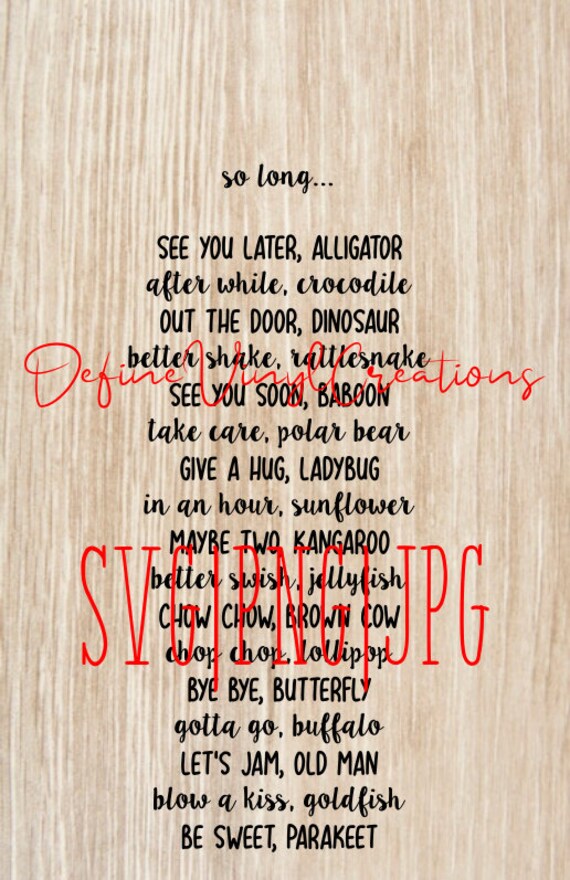 so long...
SEE YOU LATER, ALLIGATOR
after while, crocodile
OUT THE DOOR, DINOSAUR
better shake, rattlesnake
DefineVinylCreations
SEE YOU SOON, BABOON
take care, polar bear
GIVE A HUG, LADYBUG
in an hour, sunflower
MAYBE TWO, KANGAROO
better swish, jellyfish
SVG|PNG|JPG
CHOW CHOW, BROWN COW
chop chop, lollipop
BYE BYE, BUTTERFLY
gotta go, buffalo
LET'S JAM, OLD MAN
blow a kiss, goldfish
BE SWEET, PARAKEET